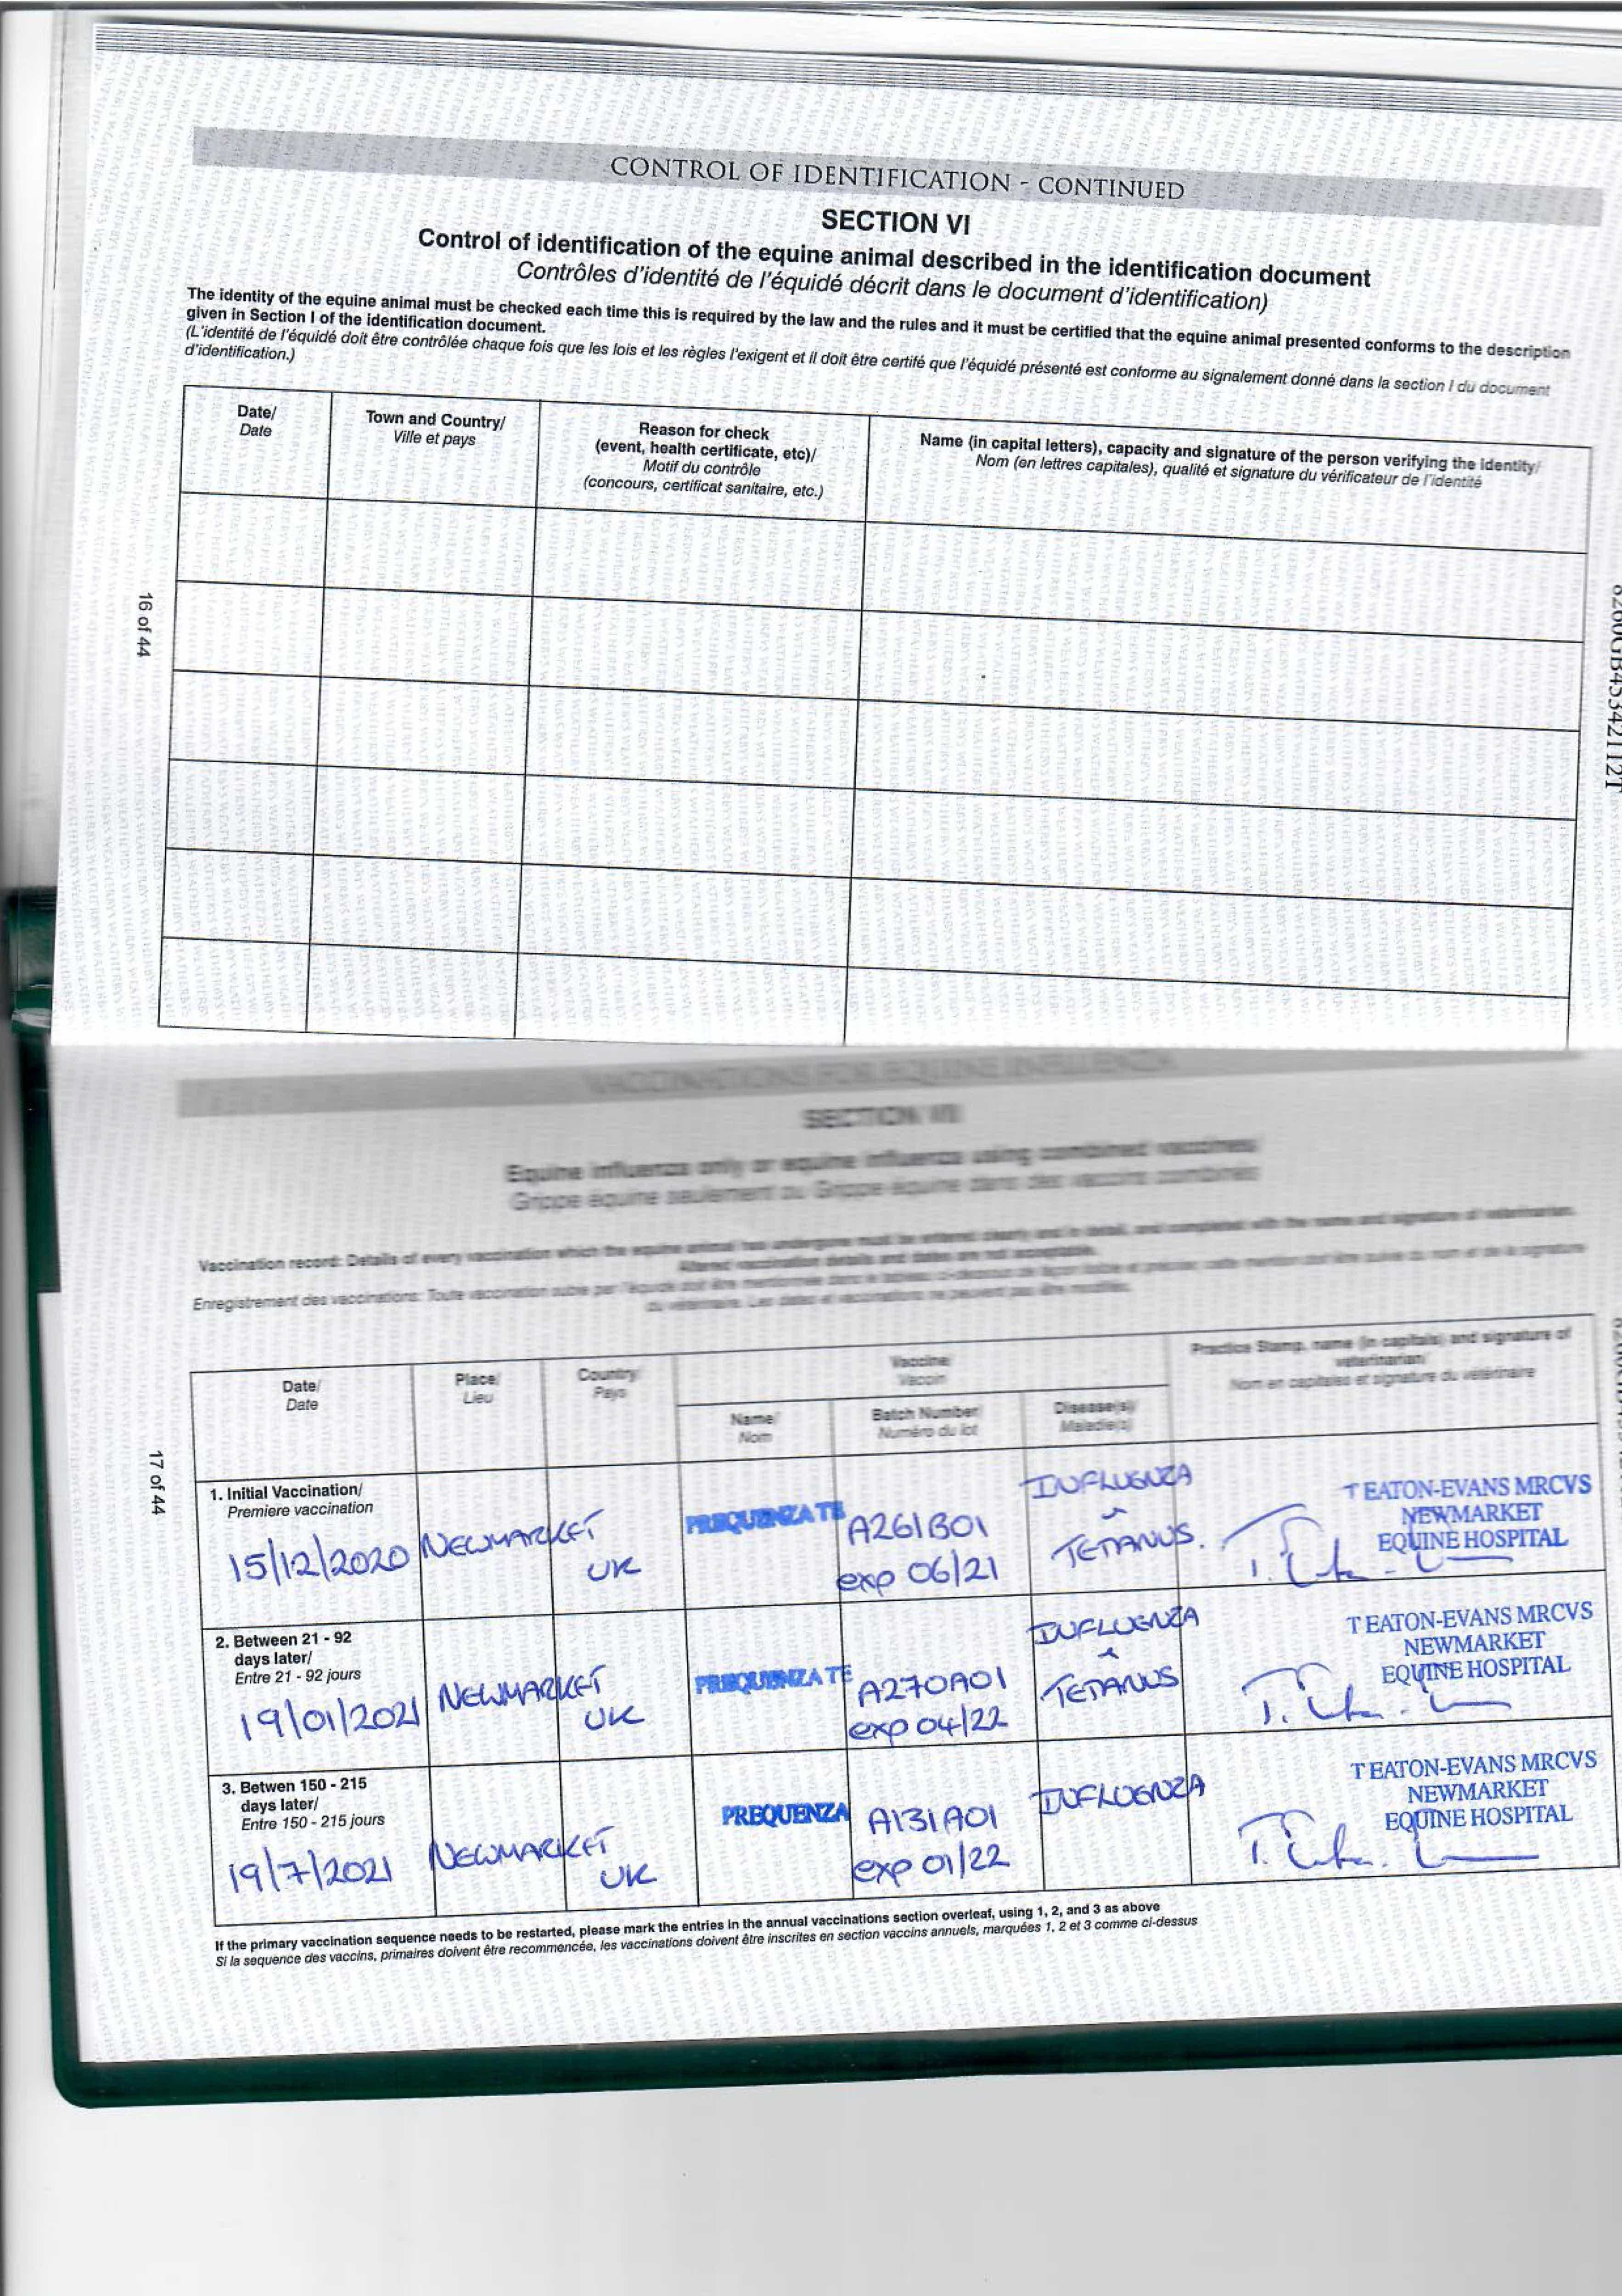 CONTROL OF IDENTIFICATION - CONTINUED
SECTION VI
Control of identification of the equine animal described in the identification document
Contrôles d'identité de l'équidé décrit dans le document d'identification)
The identity of the equine animal must be checked each time this is required by the law and the rules and it must be certified that the equine animal presented conforms to the description
given in Section I of the identification document.
(L'identité de l'équidé doit être contrôlée chaque fois que les lois et les règles l'exigent et il doit être certifé que l'équidé présenté est conforme au signalement donné dans la section I du document
d'identification.)
Date/
Date
Town and Country/
Ville et pays
Reason for check
(event, health certificate, etc)/
Motif du contrôle
(concours, certificat sanitaire, etc.)
Name (in capital letters), capacity and signature of the person verifying the identity/
Nom (en lettres capitales), qualité et signature du vérificateur de l'identité
16 of 44
VACCINATIONS FOR EQUINE INFLUENZA
SECTION VII
Equine influenza only or equine influenza using combined vaccines
Grippe équine seulement ou Grippe équine dans des vaccins combinés
Vaccination record: Details of every vaccination which the equine animal has undergone must be entered clearly and in detail, and completed with the name and signature of veterinarian.
Altered vaccination details and dates are not acceptable.
Enregistrement des vaccinations: Toute vaccination subie par l'équidé doit être mentionnée dans le tableau ci-dessous de façon lisible et précise; cette mention doit être suivie du nom et de la signature
du vétérinaire. Les dates et vaccinations ne peuvent pas être modifiés.
Date/
Date
Place/
Lieu
Country/
Pays
Vaccine/
Vaccin
Name/
Nom
Batch Number/
Numéro du lot
Disease(s)/
Maladie(s)
Practice Stamp, name (in capitals) and signature of
veterinarian/
Nom en capitales et signature du vétérinaire
17 of 44
1. Initial Vaccination/
Premiere vaccination
15/12/2020
NEWMARKET
UK
PREQUENZA TE
A261B01
exp 06/21
INFLUENZA
TETANUS.
T EATON-EVANS MRCVS
NEWMARKET
EQUINE HOSPITAL
2. Between 21 - 92
days later/
Entre 21 - 92 jours
19/01/2021
NEWMARKET
UK
PREQUENZA TE
A270A01
exp 04/22
INFLUENZA
TETANUS
T EATON-EVANS MRCVS
NEWMARKET
EQUINE HOSPITAL
3. Betwen 150 - 215
days later/
Entre 150 - 215 jours
19/7/2021
NEWMARKET
UK
PREQUENZA
A131A01
exp 01/22
INFLUENZA
T EATON-EVANS MRCVS
NEWMARKET
EQUINE HOSPITAL
If the primary vaccination sequence needs to be restarted, please mark the entries in the annual vaccinations section overleaf, using 1, 2, and 3 as above
Si la sequence des vaccins, primaires doivent être recommencée, les vaccinations doivent être inscrites en section vaccins annuels, marquées 1, 2 et 3 comme ci-dessus